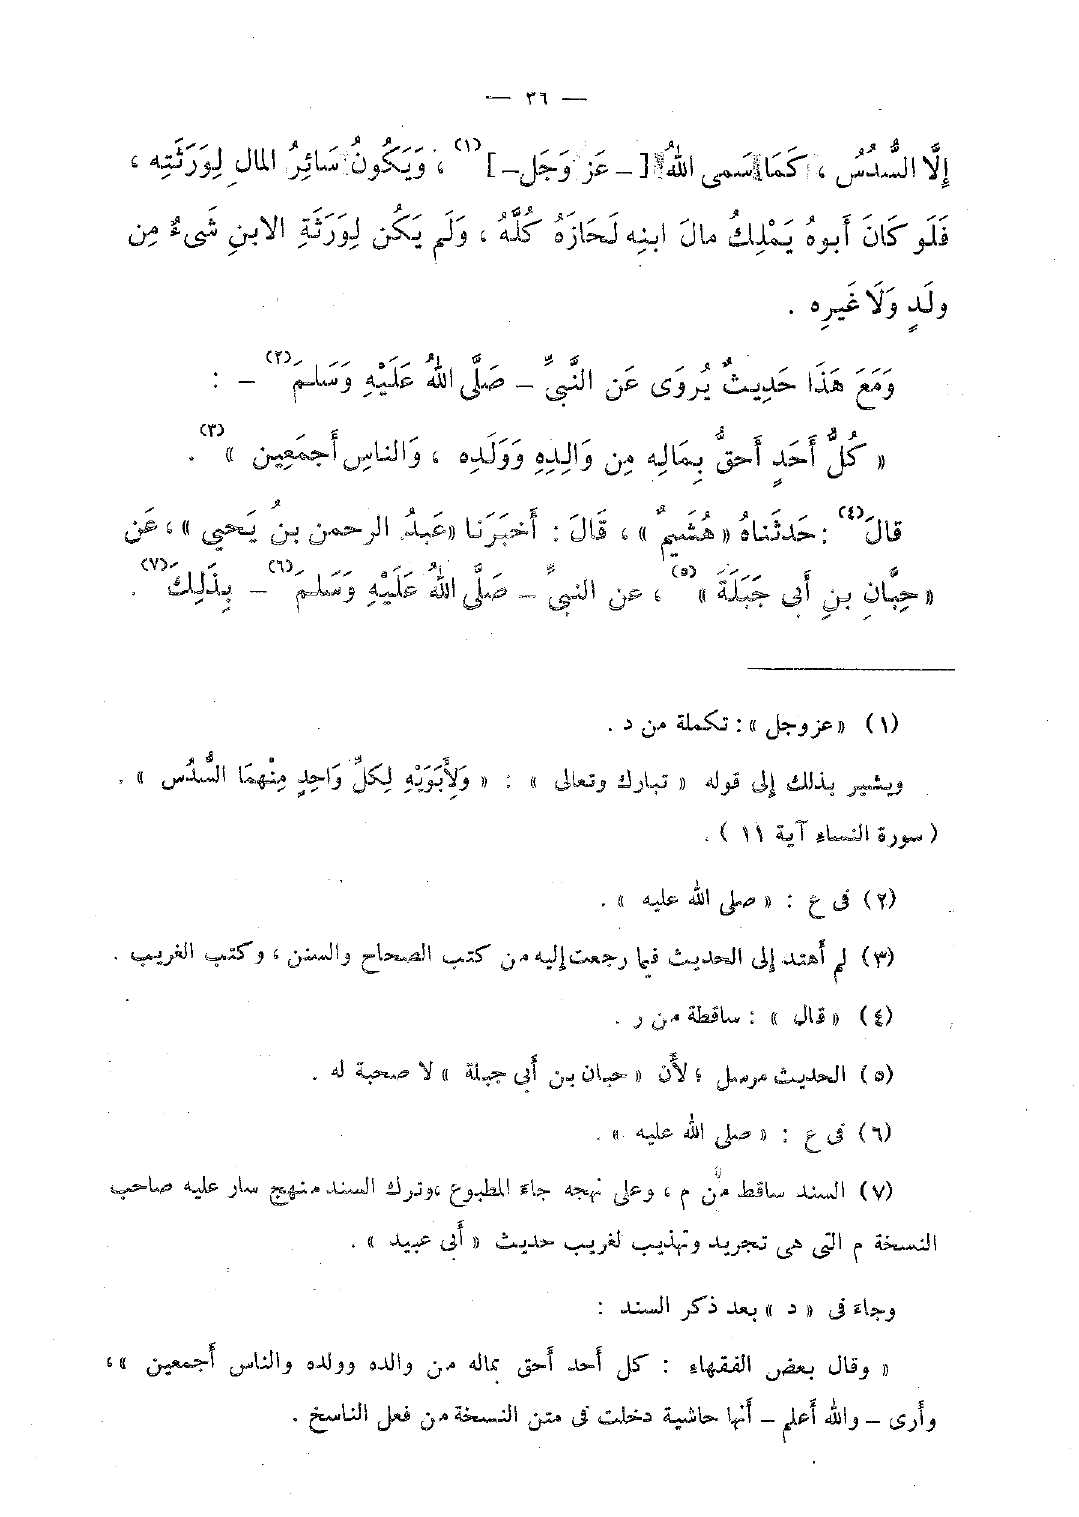 — ٣٦ —
إلَّا السُّدُسُ ، كَمَا سَمى اللهُ [– عَز وَجَل –] (١) ، وَيَكُونُ سَائِرُ المالِ لِوَرَثَتِه ،
فَلَو كَانَ أَبوهُ يَمْلِكُ مالَ ابنِه لَحَازَهُ كُلَّهُ ، وَلَم يَكُن لِوَرَثَةِ الابنِ شَىءٌ مِن
ولَدٍ وَلَا غَيرِه .
وَمَعَ هَذَا حَدِيثٌ يُروَى عَن النَّبىِّ – صَلَّى اللهُ عَلَيْهِ وَسَلمَ (٢) – :
« كُلُّ أَحَدٍ أَحقُّ بِمَالِه مِن وَالِدِهِ وَوَلَدِه ، وَالناسِ أَجمَعِين » (٣) .
قالَ (٤) : حَدثَناهُ « هُشَيمٌ » ، قَالَ : أَخبَرَنا « عَبدُ الرحمن بنُ يَحيى » ، عَن
« حِبَّانِ بنِ أَبى جَبَلَةَ » (٥) ، عن النبىِّ – صَلَّى اللهُ عَلَيْهِ وَسَلمَ (٦) – بِذَلِكَ (٧) .
(١) « عز وجل » : تكملة من د .
ويشير بذلك إلى قوله « تبارك وتعالى » : « وَلِأَبَوَيْهِ لِكلِّ وَاحِدٍ مِنْهمَا السُّدُس » .
( سورة النساء آية ١١ ) .
(٢) فى ع : « صلى الله عليه » .
(٣) لم أَهتد إلى الحديث فيما رجعت إليه من كتب الصحاح والسنن ، وكتب الغريب .
(٤) « قال » : ساقطة من ر .
(٥) الحديث مرسل ؛ لأَن « حبان بن أَبى جبلة » لا صحبة له .
(٦) فى ع : « صلى الله عليه » .
(٧) السند ساقط من م ، وعلى نهجه جاءَ المطبوع ، وترك السند منهج سار عليه صاحب
النسخة م التى هى تجريد وتهذيب لغريب حديث « أَبى عبيد » .
وجاءَ فى « د » بعد ذكر السند :
« وقال بعض الفقهاء : كل أَحد أَحق بماله من والده وولده والناس أَجمعين » ،
وأَرى – والله أَعلم – أَنها حاشية دخلت فى متن النسخة من فعل الناسخ .